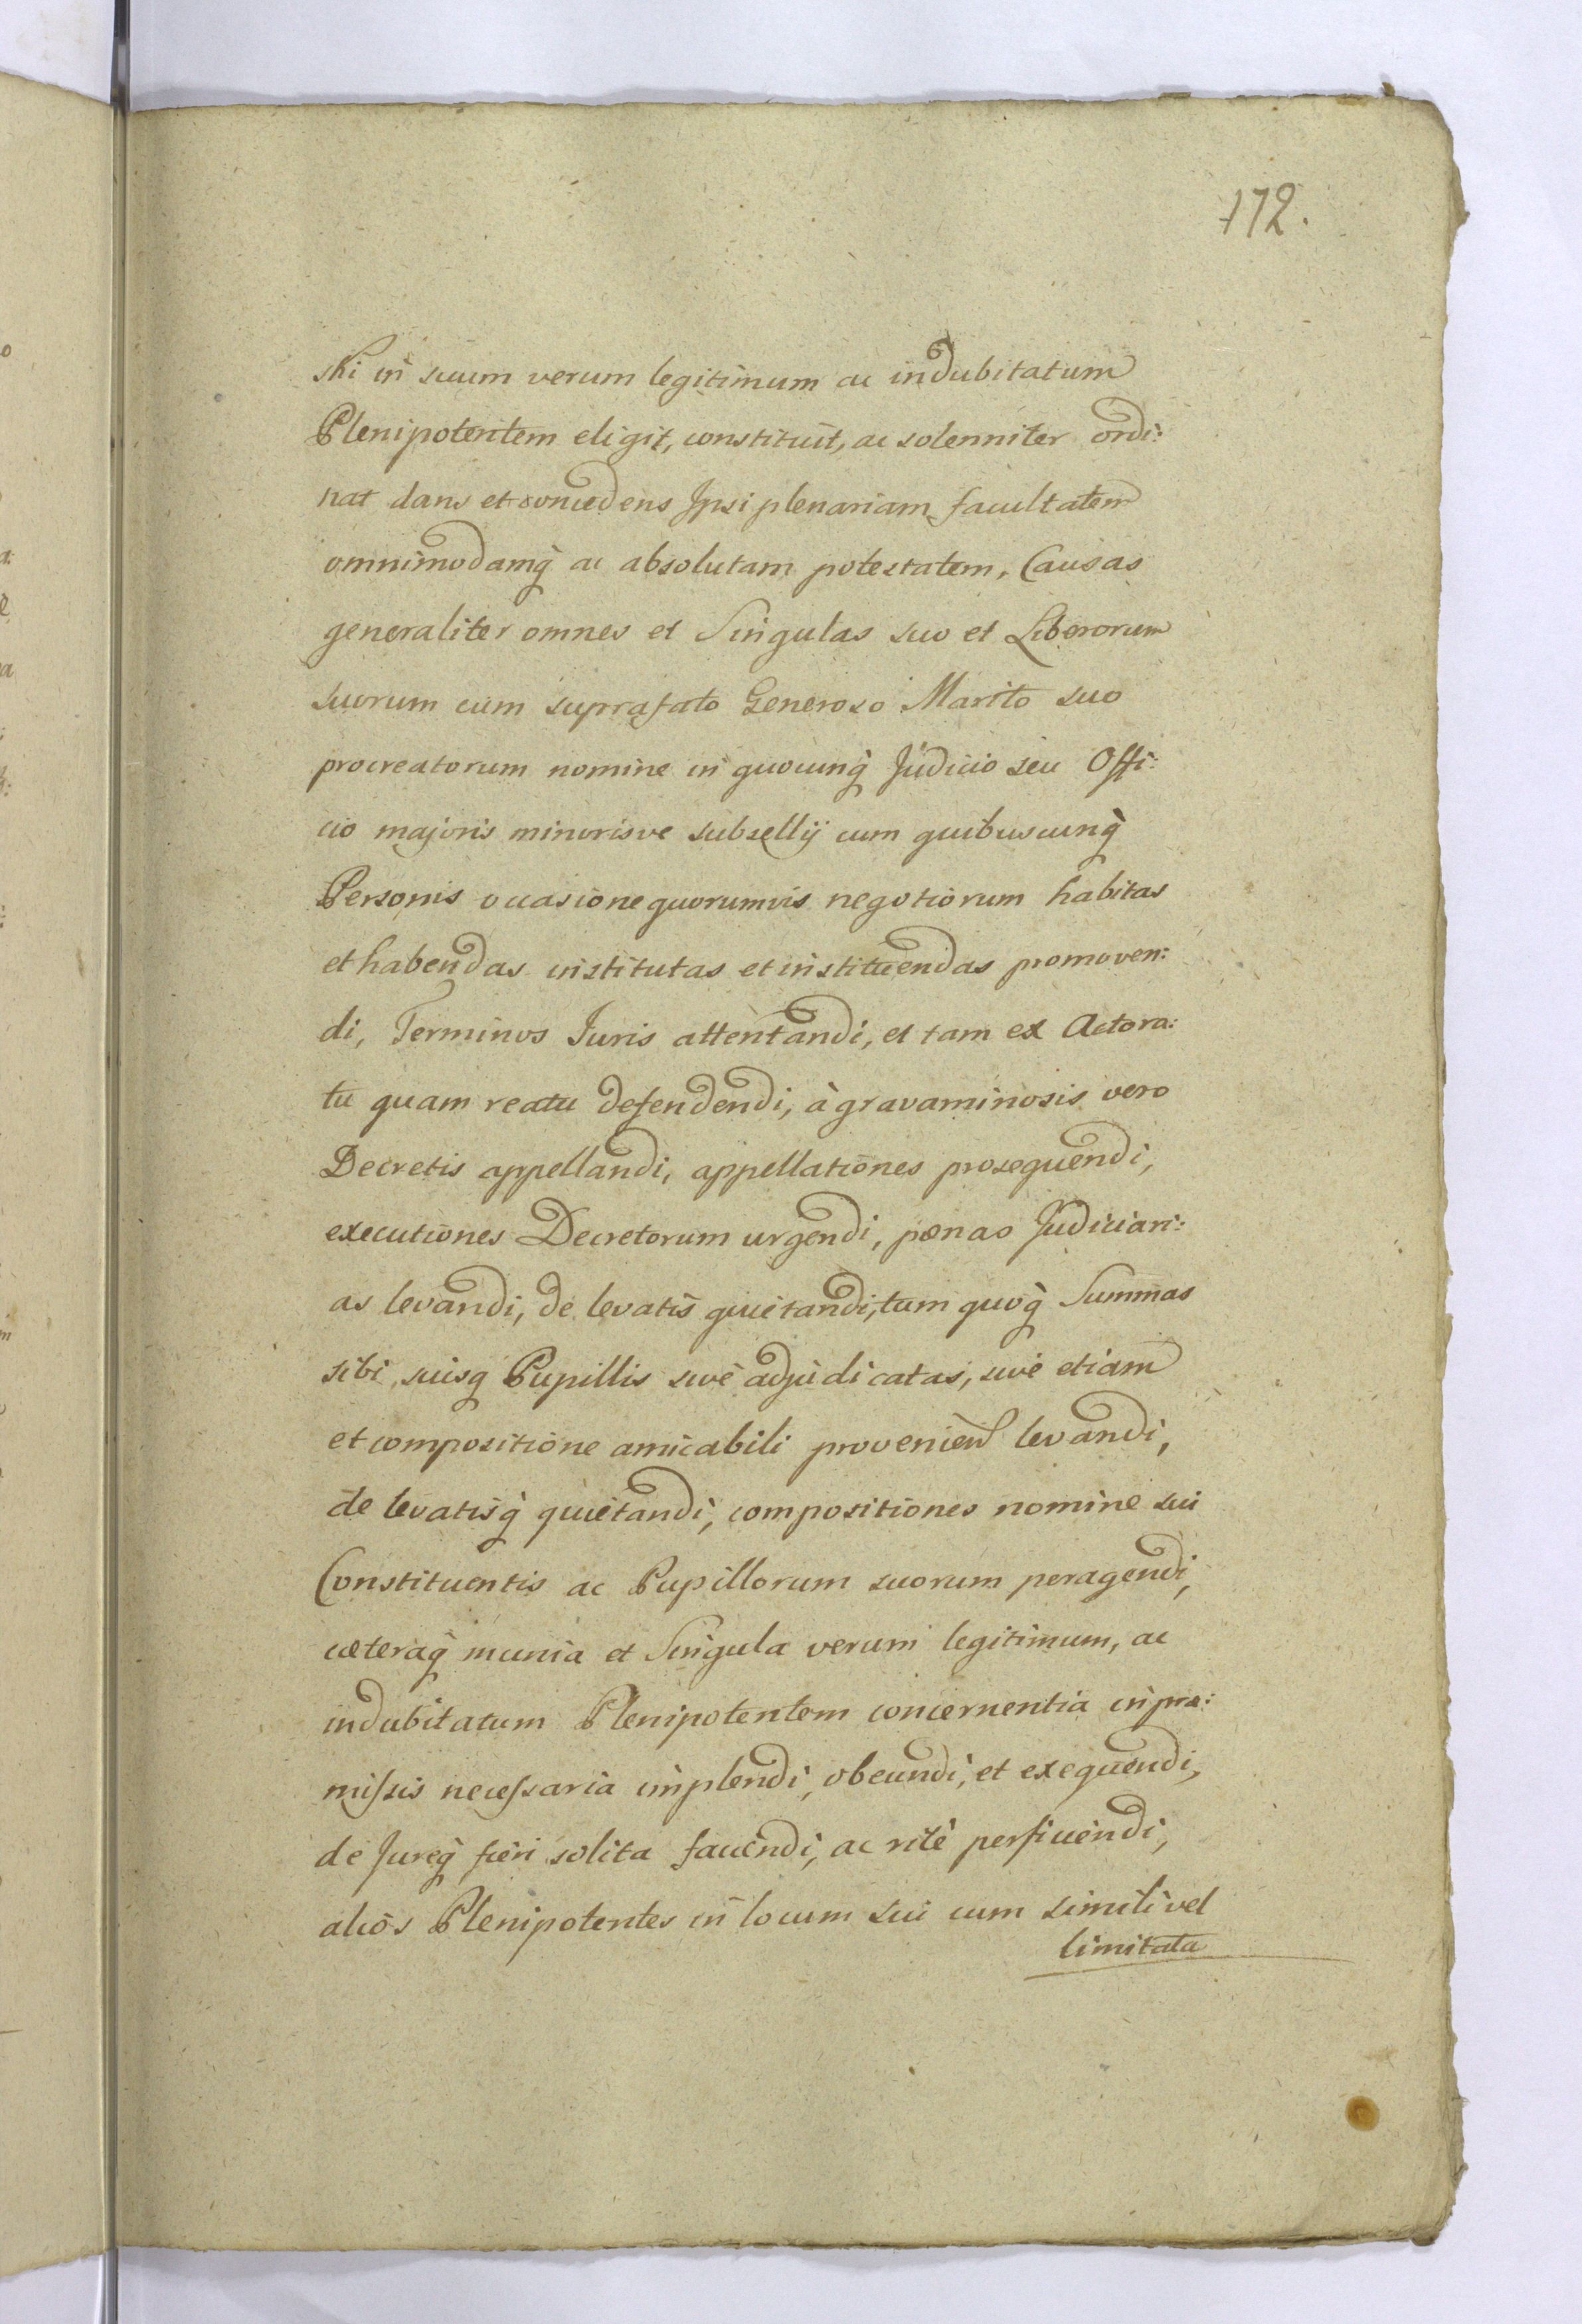 172.
ski in suum verum legitimum ac indubitatum
Plenipotentem eligit, constituit, ac solenniter ordi:
nat dans et concedens Ipsi plenariam facultatem
omnimodamq̀ ac absolutam potestatem, Causas
generaliter omnes et Singulas suo et Liberorum
suorum cum suprafato Generoso Marito suo
procreatorum nomine in quocunq̀ Judicio seu Offi:
cio majoris minorisve subsellij cum quibuscunq̀
Personis occasione quorumvis negotiorum habitas
et habendas institutas et instituendas promoven:
di, Terminos Juris attentandi, et tam ex Actora:
tu quam reatu defendendi, à gravaminosis vero
Decretis appellandi, appellationes prosequendi,
executiones Decretorum urgendi, pœnas Judiciari:
as levandi, de levatis quietandi, tum quoq̀ Summas
sibi, suisq Pupillis sivè adjudicatas, sivè etiam
et compositione amicabili provenien levandi,
de levatisq̀ quietandi, compositiones nomine sui
Constituentis ac Pupillorum suorum peragendi,
cæteraq̀ munia et Singula verum legitimum, ac
indubitatum Plenipotentem concernentia in præ:
missis necessaria implendi, obeundi, et exequendi,
de Jureq̀ fieri solita faciendi, ac ritè perficiendi,
alios Plenipotentes in locum sui cum simili vel
limitata